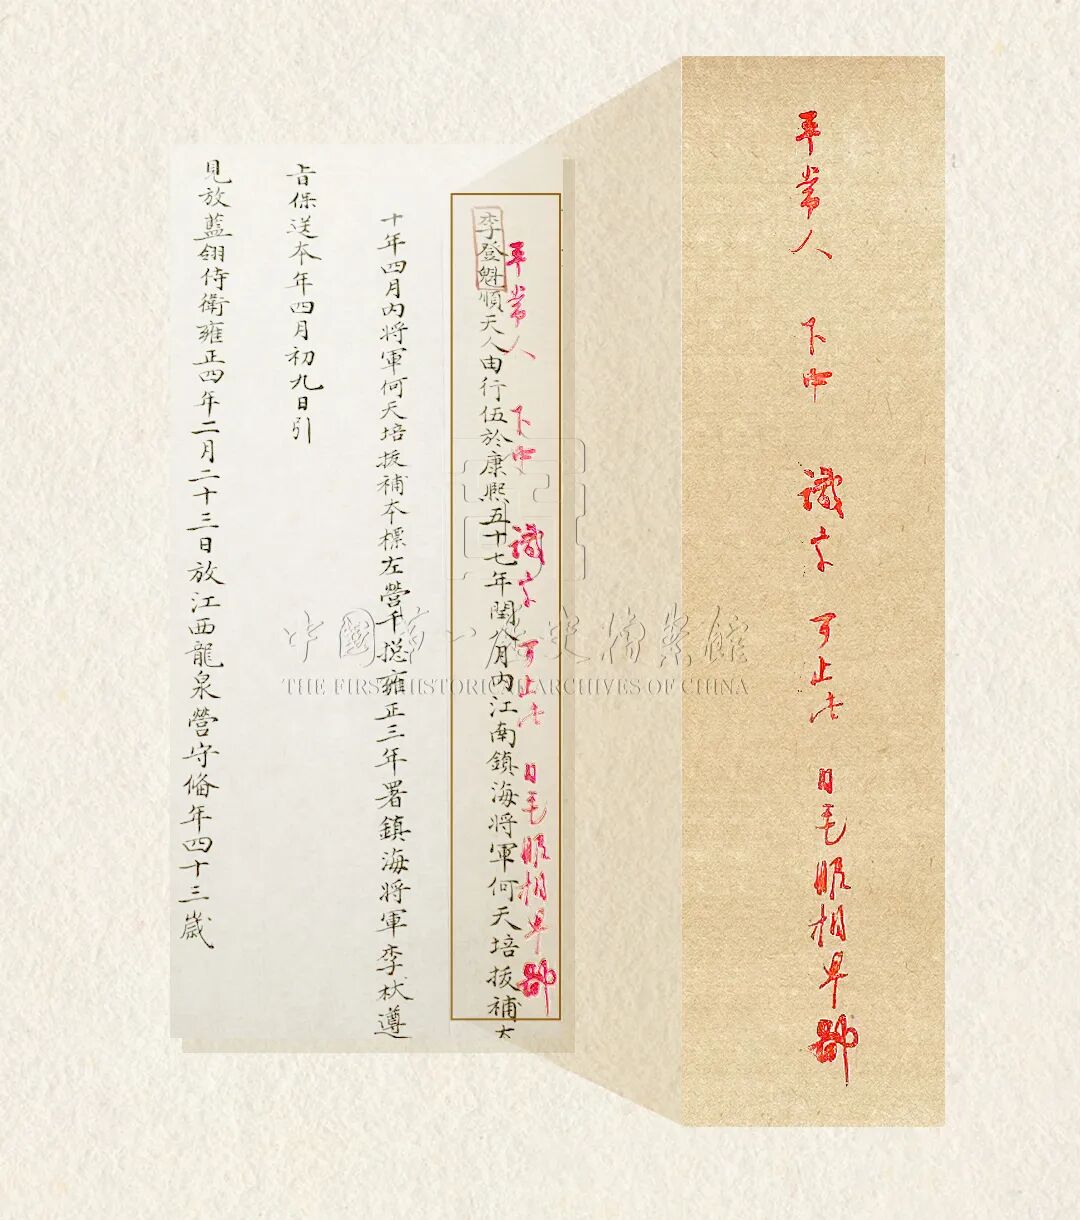 平常人 下中 識字 可止 眼相
平常人 下中 識字 可止 眼相
李登魁順天人由行伍於康熙五十七年閏八月內江南鎮海將軍何天培拔補
十年四月內將軍何天培拔補本標左營千摠雍正三年署鎮海將軍李杕遵
旨保送本年四月初九日引
見放藍翎侍衛雍正四年二月二十三日放江西龍泉營守俻年四十三歲
中國第一歷史檔案館
THE FIRST HISTORICAL ARCHIVES OF CHINA